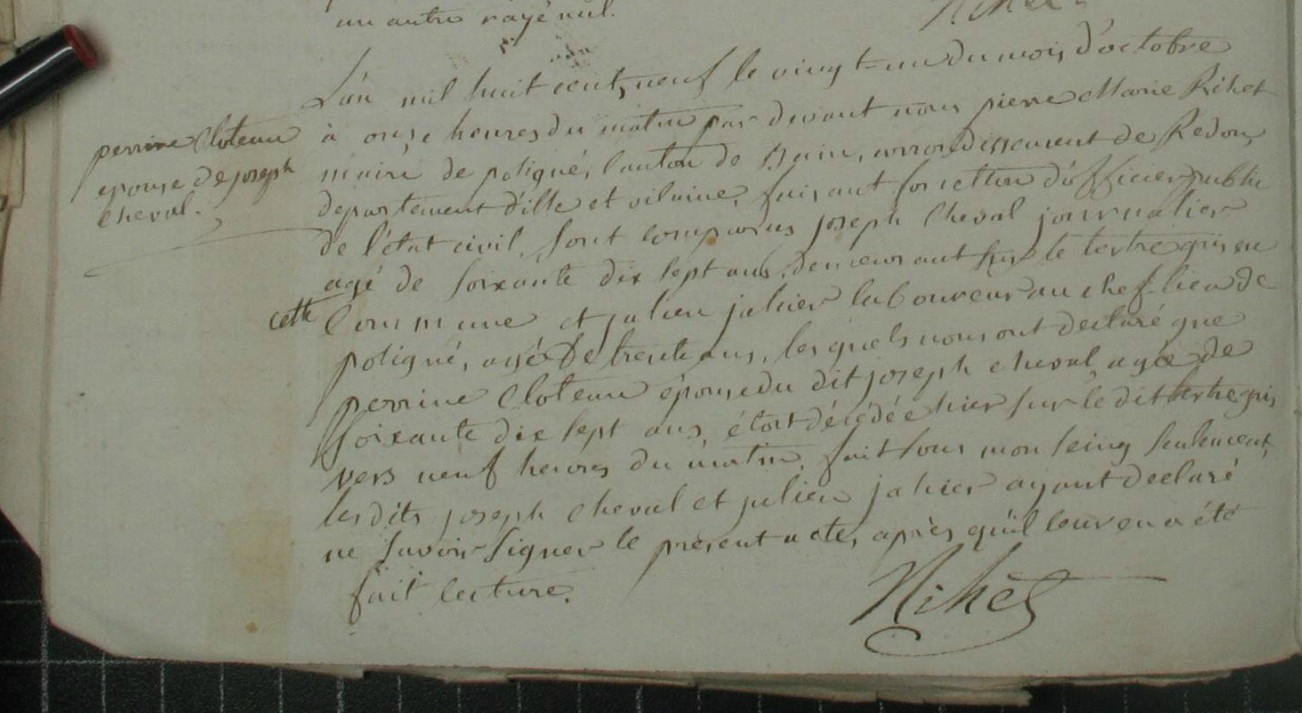 un autre rayé nul.
Nihet
L'an mil huit cent, neuf le vingt-un du mois d'octobre
à onze heures du matin par devant nous pierre Marie Nihet
maire de poligné, Canton de Bain, arrondissement de Redon,
département d'ille et vilaine, faisant fonction d'officier public
de l'état civil, sont comparus joseph Cheval journalier
agé de soixante dix sept ans, demeurant sur le tertre gris en
cette Commune et julien jahier laboureur au chef-lieu de
poligné, agé de trente ans, lesquels nous ont declaré que
perrine Cloteau épouse du dit joseph cheval, agée de
soixante dix sept ans, étoit décédée hier sur le dit tertre gris
vers neuf heures du matin, fait sous mon seing seulement,
les dits joseph Cheval et julien jahier ayant declaré
ne savoir signer le présent acte, après qu'il leur en a été
fait lecture.
Nihet
perrine Cloteau
epouse de joseph
cheval.